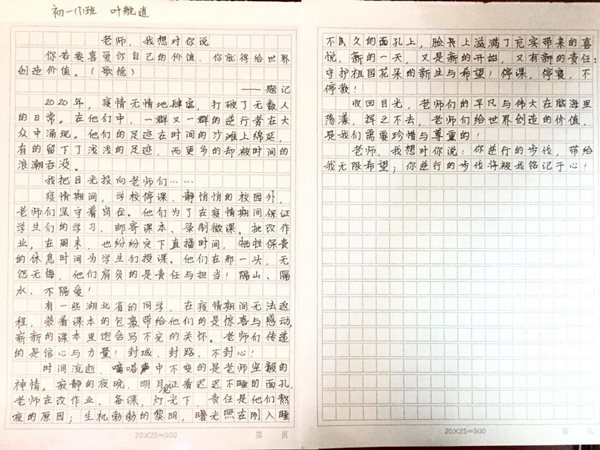 初一(1)班 叶航道
老师，我想对你说
你若要喜爱你自己的价值，你就得给世界
创造价值。（歌德）
——题记
2020年，疫情无情地肆虐，打破了无数人
的日常。在他们中，一群又一群的逆行者在大
众中涌现。他们的足迹在时间的沙滩上绵延，
有的留下了浅浅的足迹，而更多的却被时间的
浪潮吞没。
我把目光投向老师们……
疫情期间，学校停课，静悄悄的校园外，
老师们坚守着岗位。他们为了在疫情期间保证
学生们的学习，邮寄课本、录制微课。批改作
业，在周末，也纷纷定下直播时间，牺牲保贵
的休息时间为学生们授课。他们在那一头，无
怨无悔，他们肩负的是责任与担当！隔山、隔
水、不隔爱！
有一些湖北省的同学，在疫情期间无法返
程，装着课本的包裹带给他们的是惊喜与感动，
崭新的课本里饱含写不完的关怀。老师们传递
的是信心与力量！封城、封路、不封心！
时间流逝，嘀嗒声中不变的是老师坚毅的
神情。寂静的夜晚，明月证看迟迟不睡的面孔，
老师在改作业、备课，灯光下，责任是他们熬
夜的原因；生机勃勃的黎明，曙光照在刚入睡
20×25=500
第 页
不久的面孔上，脸上溢满了充实带来的喜
悦，新的一天，又是新的开始，又有新的责任：
守护祖国花朵的新生与希望！停课，停寝，不
停教！
收回目光，老师们的平凡与伟大在脑海里
荡漾，挥之不去，老师们给世界创造的价值，
是我们需要珍惜与尊重的！
老师，我想对你说：你逆行的步伐，带给
我无限希望；你逆行的步伐将被我铭记于心！
20×25=500
第